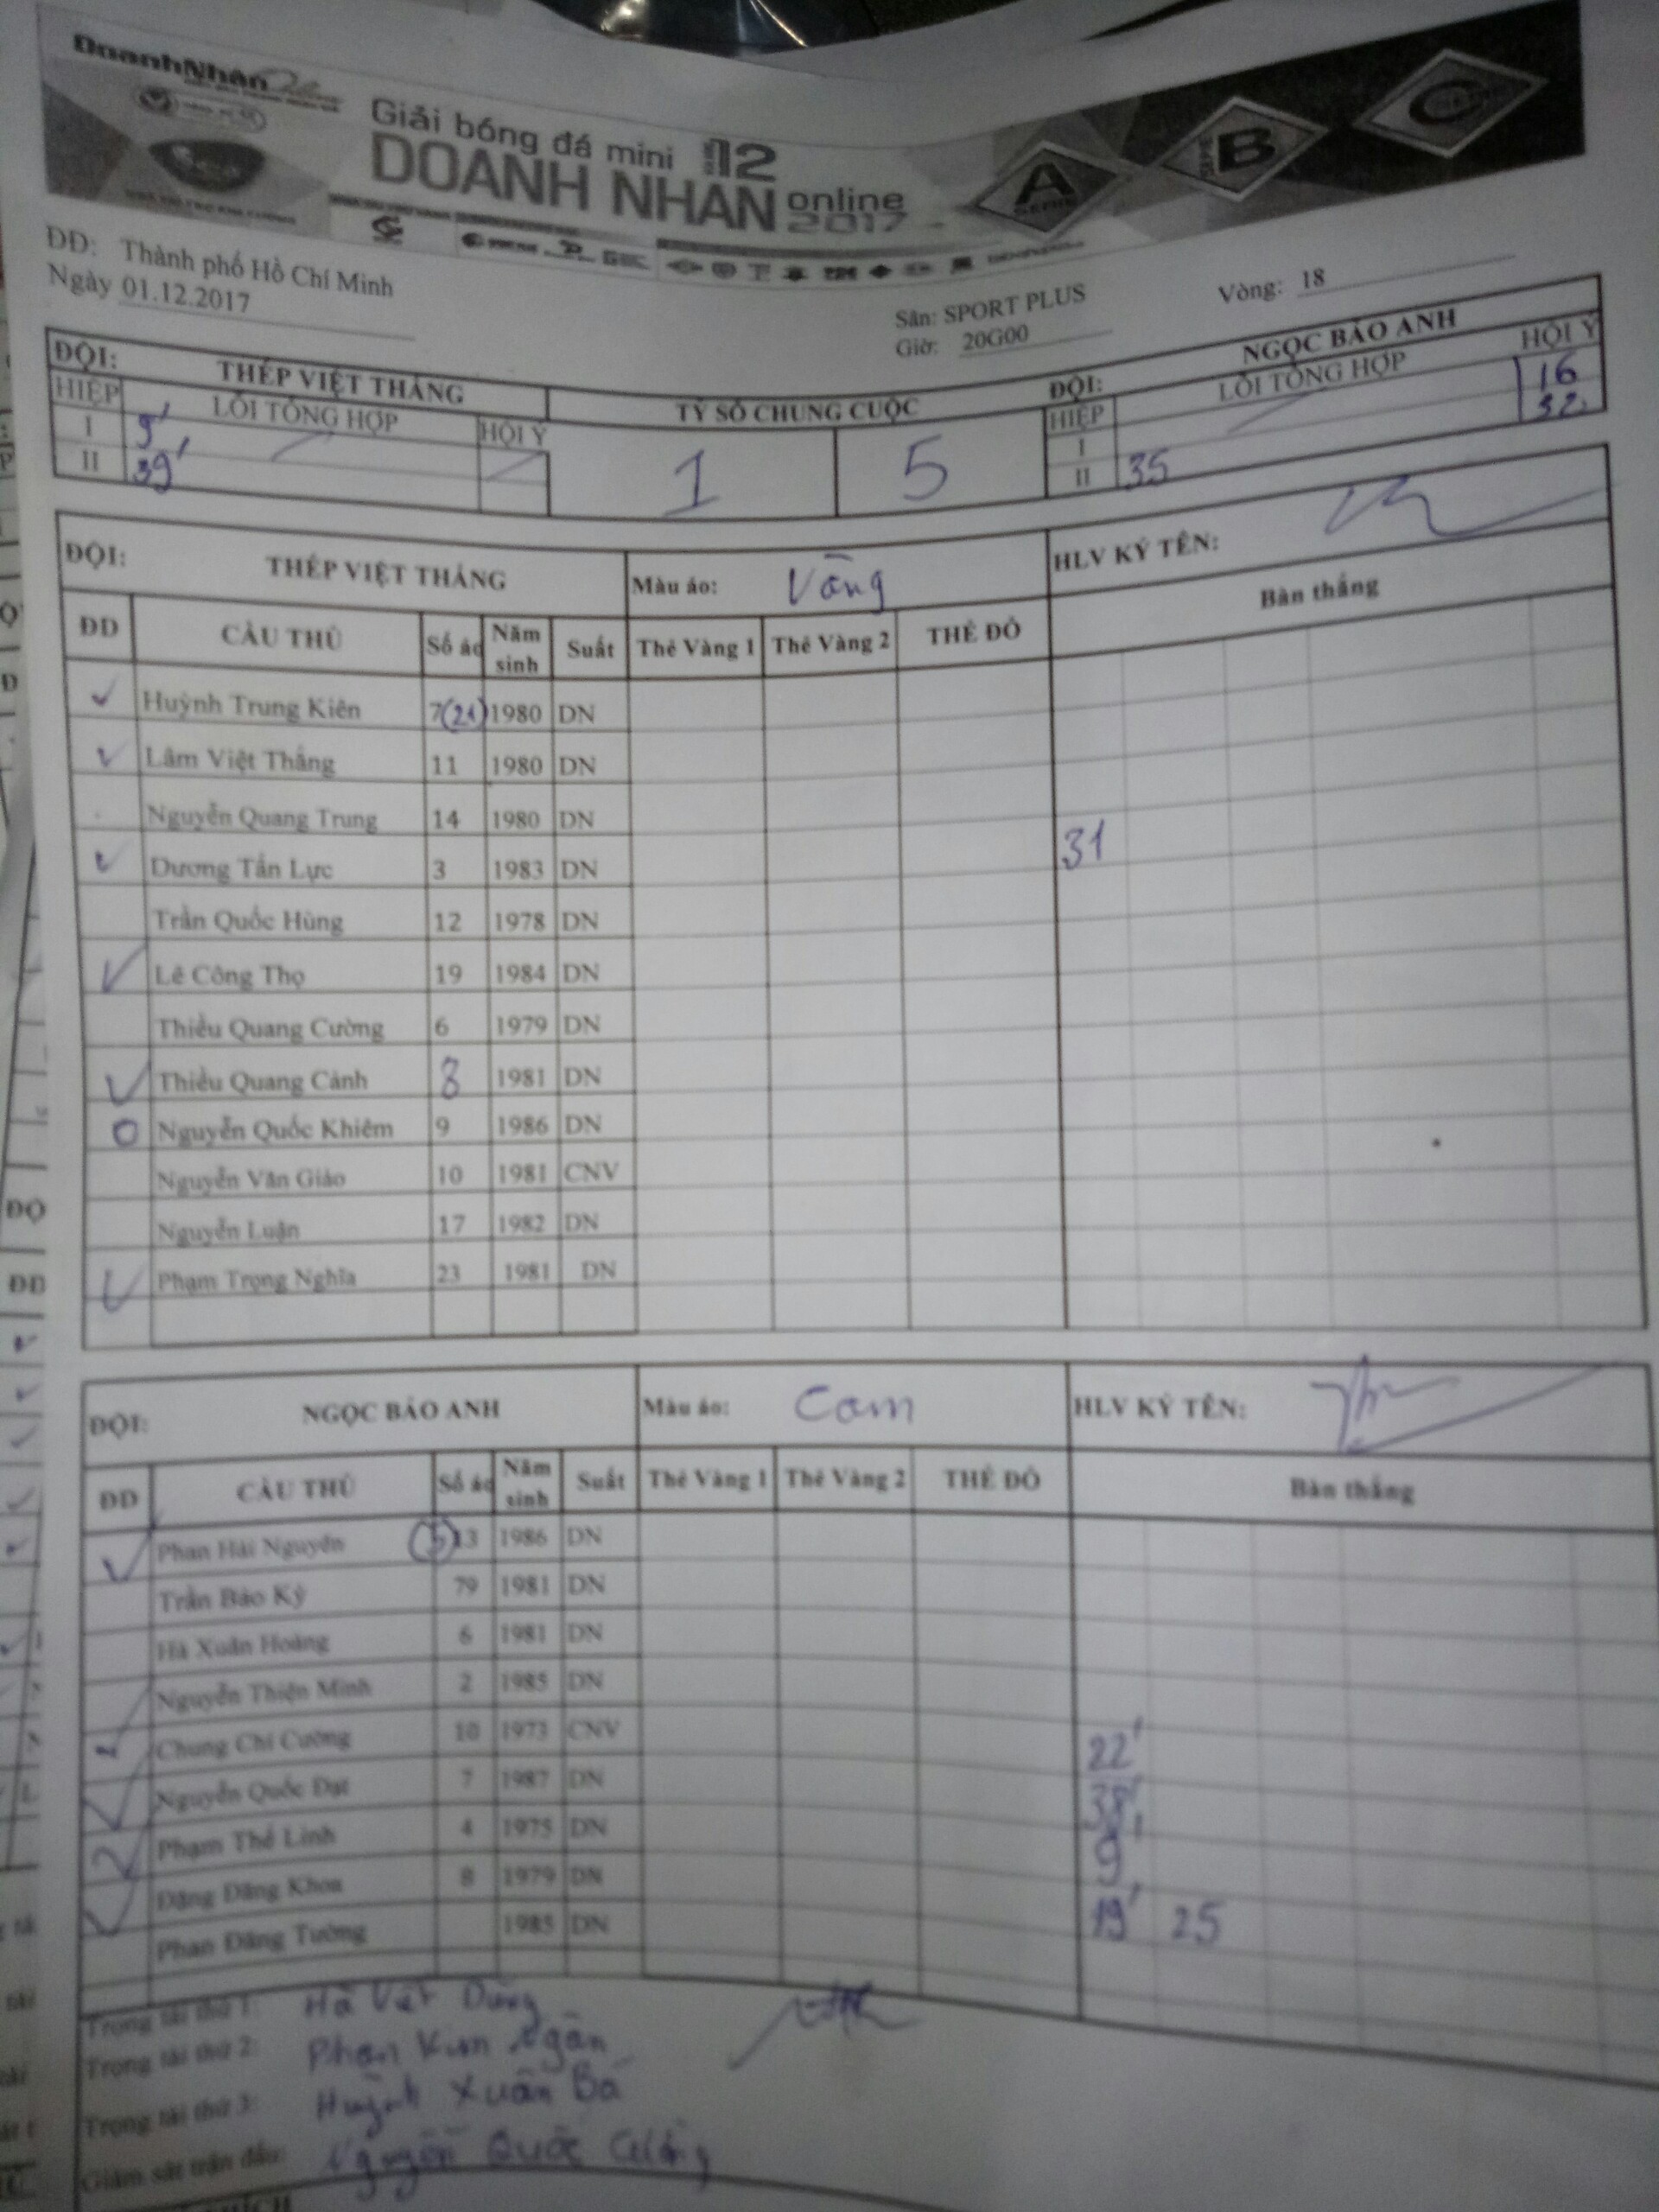 DoanhNhân
Giải bóng đá mini 12
DOANH NHÂN online
2017
A
SERIE
B
C
ĐĐ: Thành phố Hồ Chí Minh
Ngày 01.12.2017
Sân: SPORT PLUS
Giờ: 20G00
Vòng: 18
ĐỘI: THÉP VIỆT THẮNG TỶ SỐ CHUNG CUỘC ĐỘI: NGỌC BẢO ANH
HIỆP LỖI TỔNG HỢP HỘI Ý 1 5 HIỆP LỖI TỔNG HỢP HỘI Ý
I 9' I 16
II 39' II 35 32
ĐỘI: THÉP VIỆT THẮNG Màu áo: Vàng HLV KÝ TÊN:
ĐD CẦU THỦ Số áo Năm sinh Suất Thẻ Vàng 1 Thẻ Vàng 2 THẺ ĐỎ Bàn thắng
✓ Huỳnh Trung Kiên 7(21) 1980 DN
✓ Lâm Việt Thắng 11 1980 DN
Nguyễn Quang Trung 14 1980 DN
✓ Dương Tấn Lực 3 1983 DN 31
Trần Quốc Hùng 12 1978 DN
✓ Lê Công Thọ 19 1984 DN
Thiều Quang Cường 6 1979 DN
✓ Thiều Quang Cảnh 8 1981 DN
O Nguyễn Quốc Khiêm 9 1986 DN
Nguyễn Văn Giáo 10 1981 CNV
Nguyễn Luận 17 1982 DN
✓ Phạm Trọng Nghĩa 23 1981 DN
ĐỘI: NGỌC BẢO ANH Màu áo: Cam HLV KÝ TÊN:
ĐD CẦU THỦ Số áo Năm sinh Suất Thẻ Vàng 1 Thẻ Vàng 2 THẺ ĐỎ Bàn thắng
✓ Phan Hải Nguyên 13 1986 DN
Trần Bảo Kỳ 79 1981 DN
Hà Xuân Hoàng 6 1981 DN
Nguyễn Thiện Minh 2 1985 DN
Chung Chí Cường 10 1973 CNV 22'
✓ Nguyễn Quốc Đạt 7 1987 DN 38'
✓ Phạm Thế Linh 4 1975 DN 9'
✓ Đặng Đăng Khoa 8 1979 DN 19' 25
Phan Đăng Tường 1985 DN
Trọng tài thứ 1: Hà Việt Dũng
Trọng tài thứ 2: Phan Kim Ngân
Trọng tài thứ 3: Huỳnh Xuân Bá
Giám sát trận đấu: Nguyễn Quốc